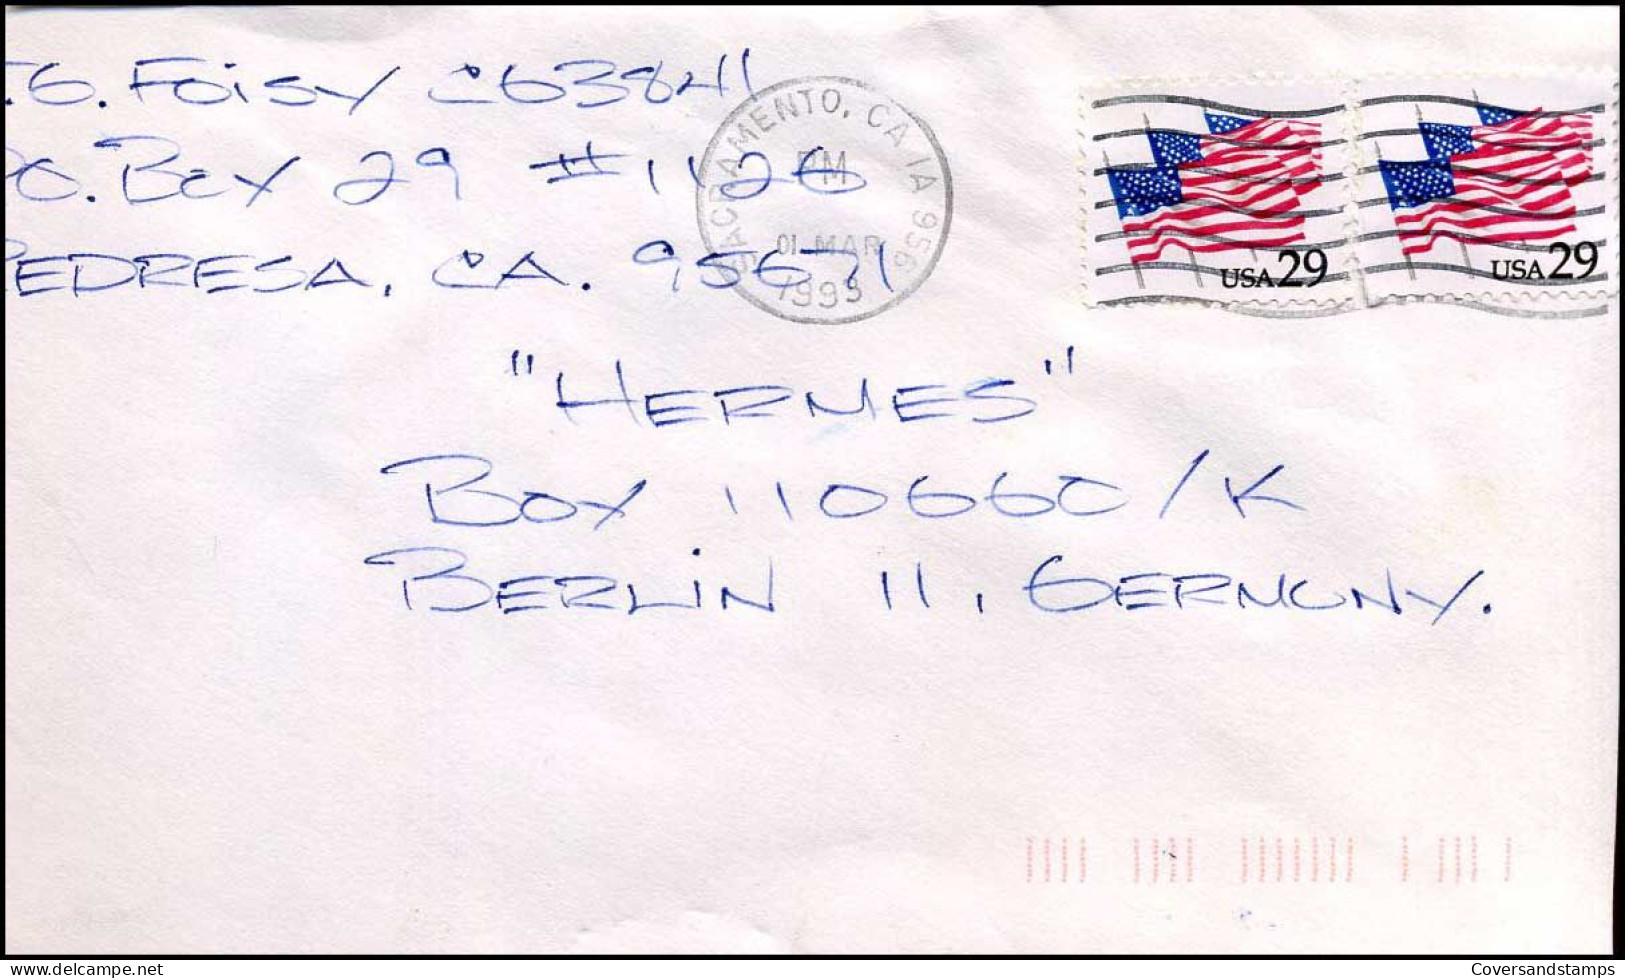 .G. Foisy C63841
P.O. Box 29 #1126
REDRESA, CA. 95671
SACRAMENTO, CA 1A 956
PM
01 MAR
1993
USA 29
USA 29
"HERMES"
BOX 110660/K
BERLIN 11, GERMUNY.
www.delcampe.net/store/coversandstamps
Coversandstamps